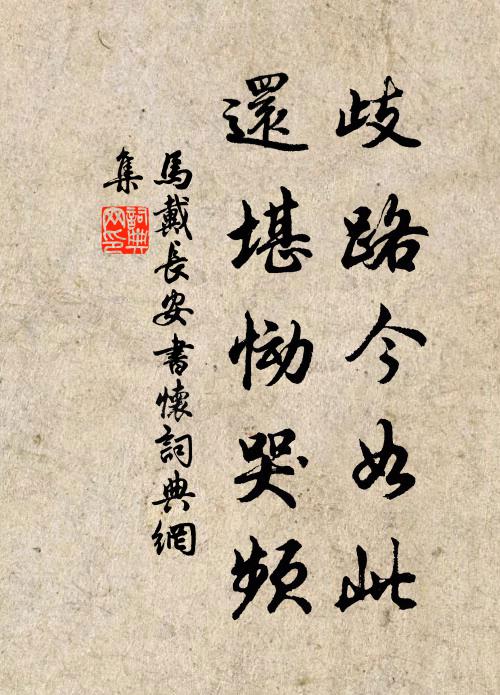 歧路今如此
還堪慟哭頻
馬戴長安書懷詞典網
集
詞典
网印